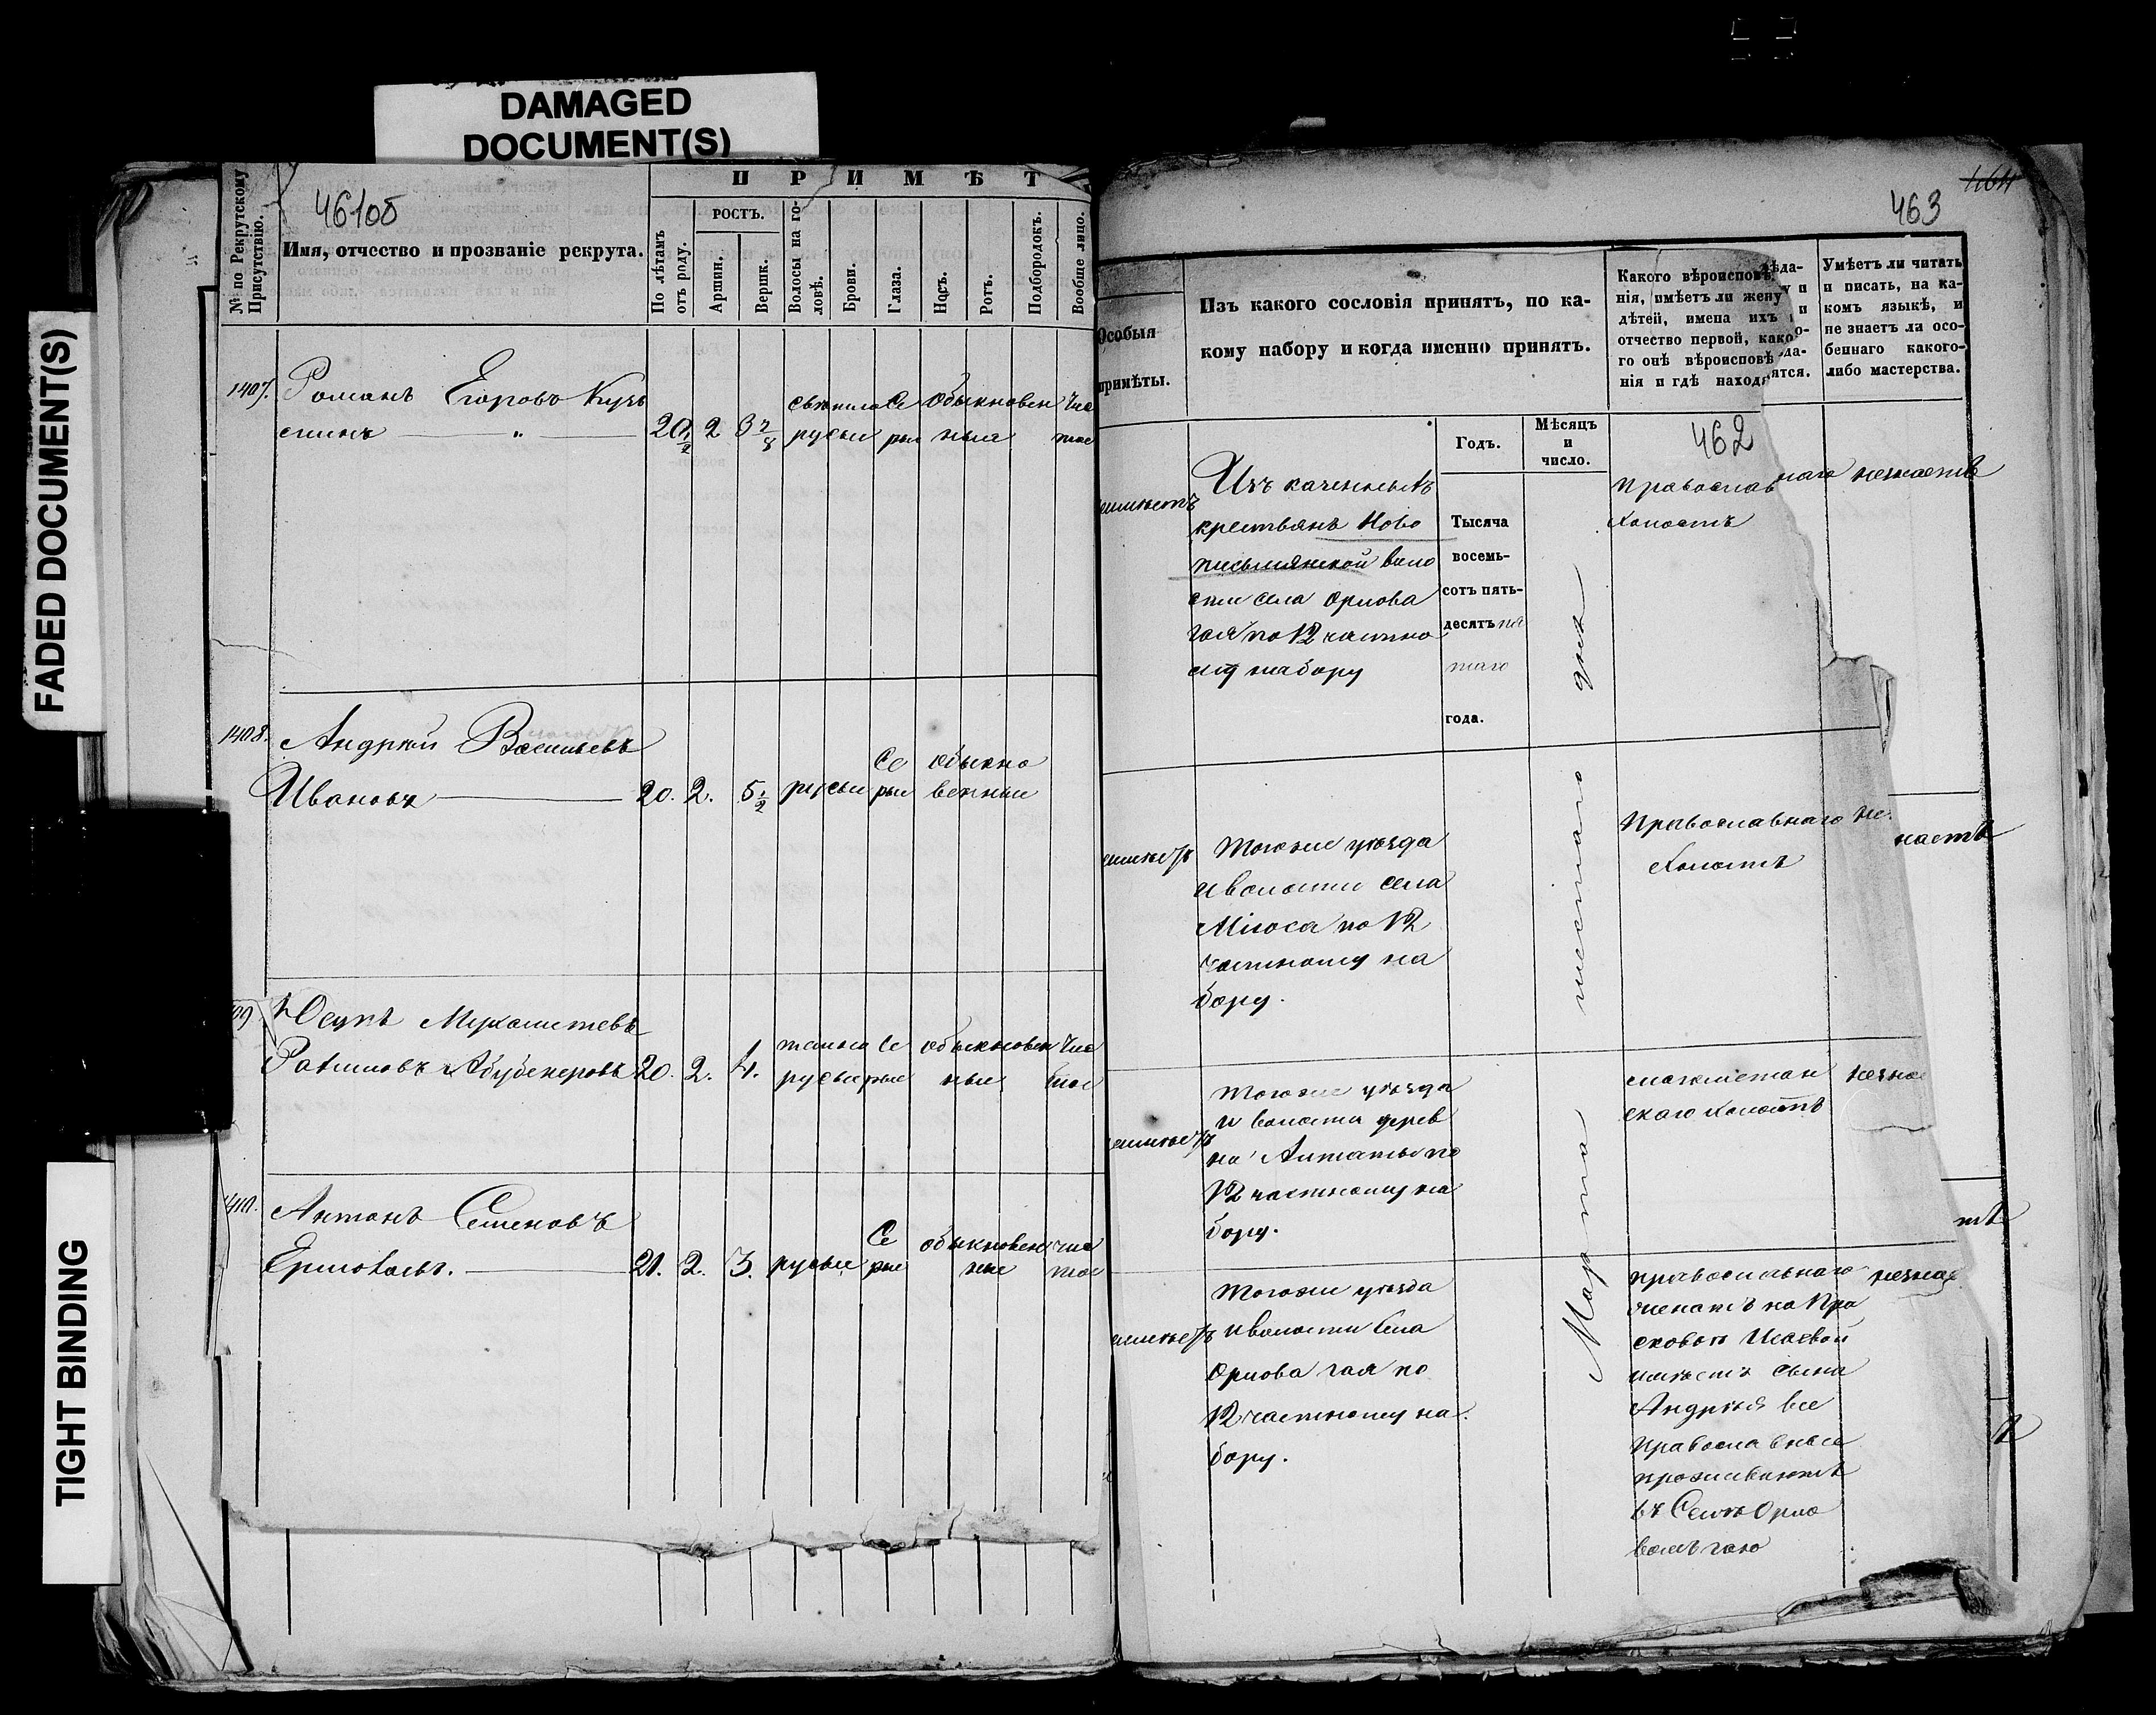 DAMAGED
DOCUMENT(S)
FADED DOCUMENT(S)
TIGHT BINDING
46100
463
462
№ по Рекрутскому
Присутствію.
Имя, отчество и прозваніе рекрута.
ПРИМѢТ
По лѣтамъ
отъ роду.
РОСТЪ.
Аршин.
Вершк.
Волосы на го-
ловѣ.
Брови.
Глаза.
Носъ.
Ротъ.
Подбородокъ.
Вообще лицо.
1407. Романъ Егоровъ Кузь
минъ 20 1/2 2 3 7/8
свѣтло Се Обыкновен Чис
русыи рыи ныи тое
1408. Андрей Васильевъ
Ивановъ 20. 2. 5 1/2 русыи
Се обыкно
рыи венныи
09 Юсупъ Мухаметевъ
Рахимовъ Абубекеровъ 20. 2. 4.
темно Се обыкновен Чис
русыи рые ные тое
1410. Антонъ Семеновъ
Ермолаевъ. 21. 2. 3. русые
Се обыкновен чис
рые ные тое
Особыя
примѣты.
Изъ какого сословія принятъ, по ка-
кому набору и когда именно принятъ.
Какого вѣроисповѣ
нія, имѣетъ ли жену
дѣтей, имена ихъ
отчество первой, како
го онѣ вѣроисповѣ
нія и гдѣ находя
Умѣетъ ли читать
и писать, на ка-
комъ языкѣ, и
не знаетъ ли осо-
беннаго какого-
либо мастерства.
Годъ.
Мѣсяцъ
и
число.
Изъ казенныхъ
крестьянъ Ново
письмянской воло
сти села Орлова
гая по 12 частно
му набору
Тысяча
восемь-
сотъ пять-
десятъ пя
таго
года.
Марта шестаго дня
Православнаго незнаетъ
Холостъ
Тогоже уѣзда
и волости села
по 12
частному на
бору.
Православнаго не
Холостъ
Тогоже уѣзда
и волости дерев
ни по
12 частному на
бору.
магометан
скаго холостъ
незна
Тогоже уѣзда
и волости села
Орлова гая по
12 частному на
бору.
православнаго незнае
женатъ на Пра
сковьѣ Исаевой
имѣетъ сына
Андрея все
православные
проживаютъ
въ Селѣ Орло
вомъ гаю